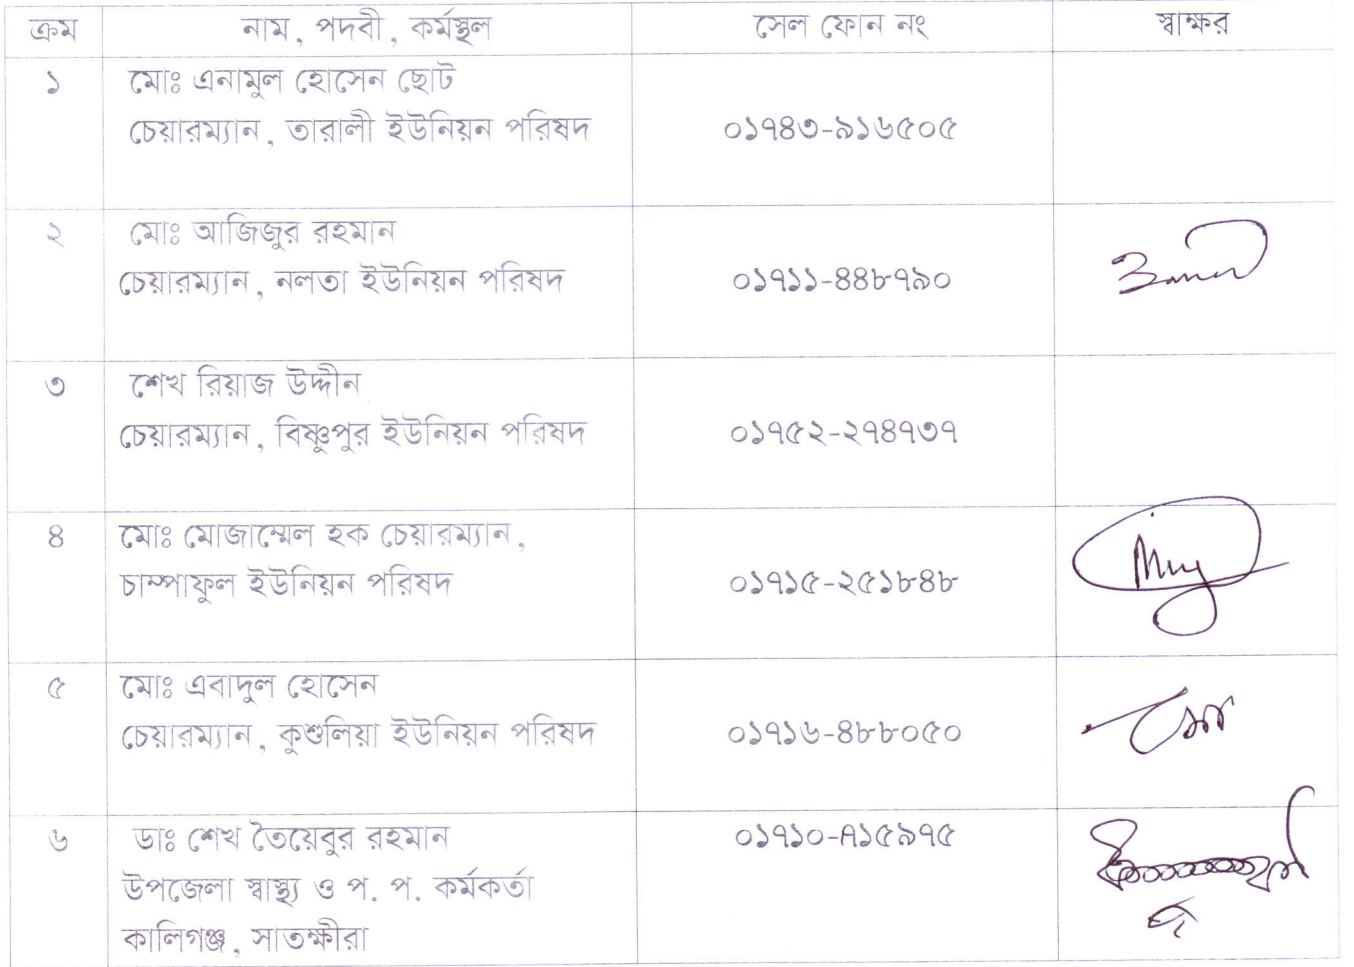 ক্রম নাম, পদবী, কর্মস্থল সেল ফোন নং স্বাক্ষর
১ মোঃ এনামুল হোসেন ছোট
চেয়ারম্যান, তারালী ইউনিয়ন পরিষদ ০১৭৪৩-৯১৬৫০৫
২ মোঃ আজিজুর রহমান
চেয়ারম্যান, নলতা ইউনিয়ন পরিষদ ০১৭১১-৪৪৮৭৯০
৩ শেখ রিয়াজ উদ্দীন
চেয়ারম্যান, বিষ্ণুপুর ইউনিয়ন পরিষদ ০১৭৫২-২৭৪৭৩৭
৪ মোঃ মোজাম্মেল হক চেয়ারম্যান,
চাম্পাফুল ইউনিয়ন পরিষদ ০১৭১৫-২৫১৮৪৮
৫ মোঃ এবাদুল হোসেন
চেয়ারম্যান, কুশুলিয়া ইউনিয়ন পরিষদ ০১৭১৬-৪৮৮০৫০
৬ ডাঃ শেখ তৈয়েবুর রহমান ০১৭১০-A১৫৯৭৫
উপজেলা স্বাস্থ্য ও প. প. কর্মকর্তা
কালিগঞ্জ, সাতক্ষীরা